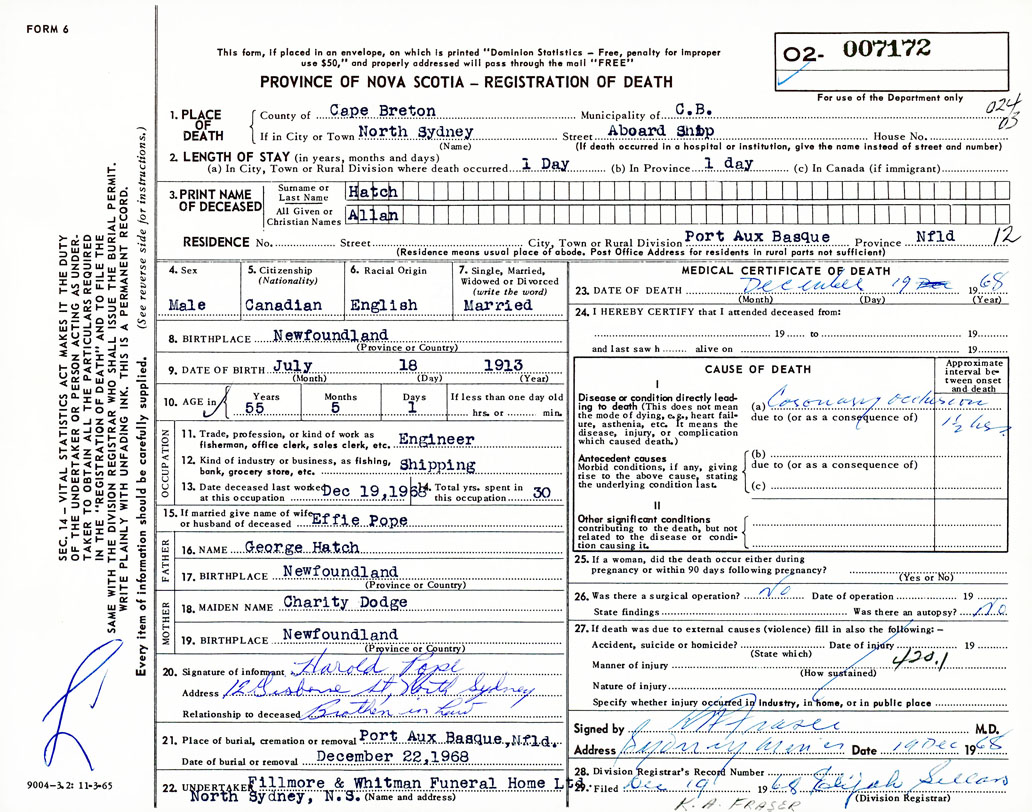 FORM 6
This form, if placed in an envelope, on which is printed "Dominion Statistics – Free, penalty for improper
use $50," and properly addressed will pass through the mail "FREE"
PROVINCE OF NOVA SCOTIA – REGISTRATION OF DEATH
02- 007172
For use of the Department only
024
03
1. PLACE OF DEATH
County of Cape Breton Municipality of C.B.
If in City or Town North Sydney Street Aboard Ship House No.
(Name) (If death occurred in a hospital or institution, give the name instead of street and number)
2. LENGTH OF STAY (in years, months and days)
(a) In City, Town or Rural Division where death occurred 1 Day (b) In Province 1 day (c) In Canada (if immigrant)
3. PRINT NAME OF DECEASED
Surname or Last Name Hatch
All Given or Christian Names Allan
RESIDENCE No. Street City, Town or Rural Division Port Aux Basque Province Nfld 12
(Residence means usual place of abode. Post Office Address for residents in rural parts not sufficient)
4. Sex Male
5. Citizenship (Nationality) Canadian
6. Racial Origin English
7. Single, Married, Widowed or Divorced (write the word) Married
8. BIRTHPLACE Newfoundland
(Province or Country)
9. DATE OF BIRTH July 18 1913
(Month) (Day) (Year)
10. AGE in Years 55 Months 5 Days 1 If less than one day old hrs. or min.
OCCUPATION
11. Trade, profession, or kind of work as fisherman, office clerk, sales clerk, etc. Engineer
12. Kind of industry or business, as fishing, bank, grocery store, etc. Shipping
13. Date deceased last worked at this occupation Dec 19,1968 14. Total yrs. spent in this occupation 30
15. If married give name of wife or husband of deceased Effie Pope
FATHER
16. NAME George Hatch
17. BIRTHPLACE Newfoundland
(Province or Country)
MOTHER
18. MAIDEN NAME Charity Dodge
19. BIRTHPLACE Newfoundland
(Province or Country)
20. Signature of informant Harold Pope
Address 12 St, North Sydney
Relationship to deceased Brother in law
21. Place of burial, cremation or removal Port Aux Basque, Nfld.
Date of burial or removal December 22,1968
22. UNDERTAKER Fillmore & Whitman Funeral Home Ltd
North Sydney, N.S. (Name and address)
MEDICAL CERTIFICATE OF DEATH
23. DATE OF DEATH December 19 1968
(Month) (Day) (Year)
24. I HEREBY CERTIFY that I attended deceased from:
19 to 19
and last saw h alive on 19
CAUSE OF DEATH
Approximate interval between onset and death
I
Disease or condition directly leading to death (This does not mean the mode of dying, e.g., heart failure, asthenia, etc. It means the disease, injury, or complication which caused death.)
(a) Coronary occlusion 1½ hrs.
due to (or as a consequence of)
Antecedent causes
Morbid conditions, if any, giving rise to the above cause, stating the underlying condition last.
(b)
due to (or as a consequence of)
(c)
II
Other significant conditions
contributing to the death, but not related to the disease or condition causing it.
25. If a woman, did the death occur either during
pregnancy or within 90 days following pregnancy?
(Yes or No)
26. Was there a surgical operation? No Date of operation 19
State findings Was there an autopsy? No
27. If death was due to external causes (violence) fill in also the following: –
Accident, suicide or homicide? Date of injury 19
(State which)
420.1
Manner of injury
(How sustained)
Nature of injury
Specify whether injury occurred in Industry, in home, or in public place
Signed by Fraser M.D.
Address Sydney Mines Date 19 Dec 1968
28. Division Registrar's Record Number
29. Filed Dec 19 1968 Elijah
(Division Registrar)
K.A. FRASER
SEC. 14 – VITAL STATISTICS ACT MAKES IT THE DUTY
OF THE UNDERTAKER OR PERSON ACTING AS UNDER.
TAKER TO OBTAIN ALL THE PARTICULARS REQUIRED
IN THE "REGISTRATION OF DEATH" AND TO FILE THE
SAME WITH THE DIVISION REGISTRAR WHO SHALL ISSUE THE BURIAL PERMIT.
WRITE PLAINLY WITH UNFADING INK. THIS IS A PERMANENT RECORD.
Every item of information should be carefully supplied. (See reverse side for instructions.)
9004-3.2: 11-3-65